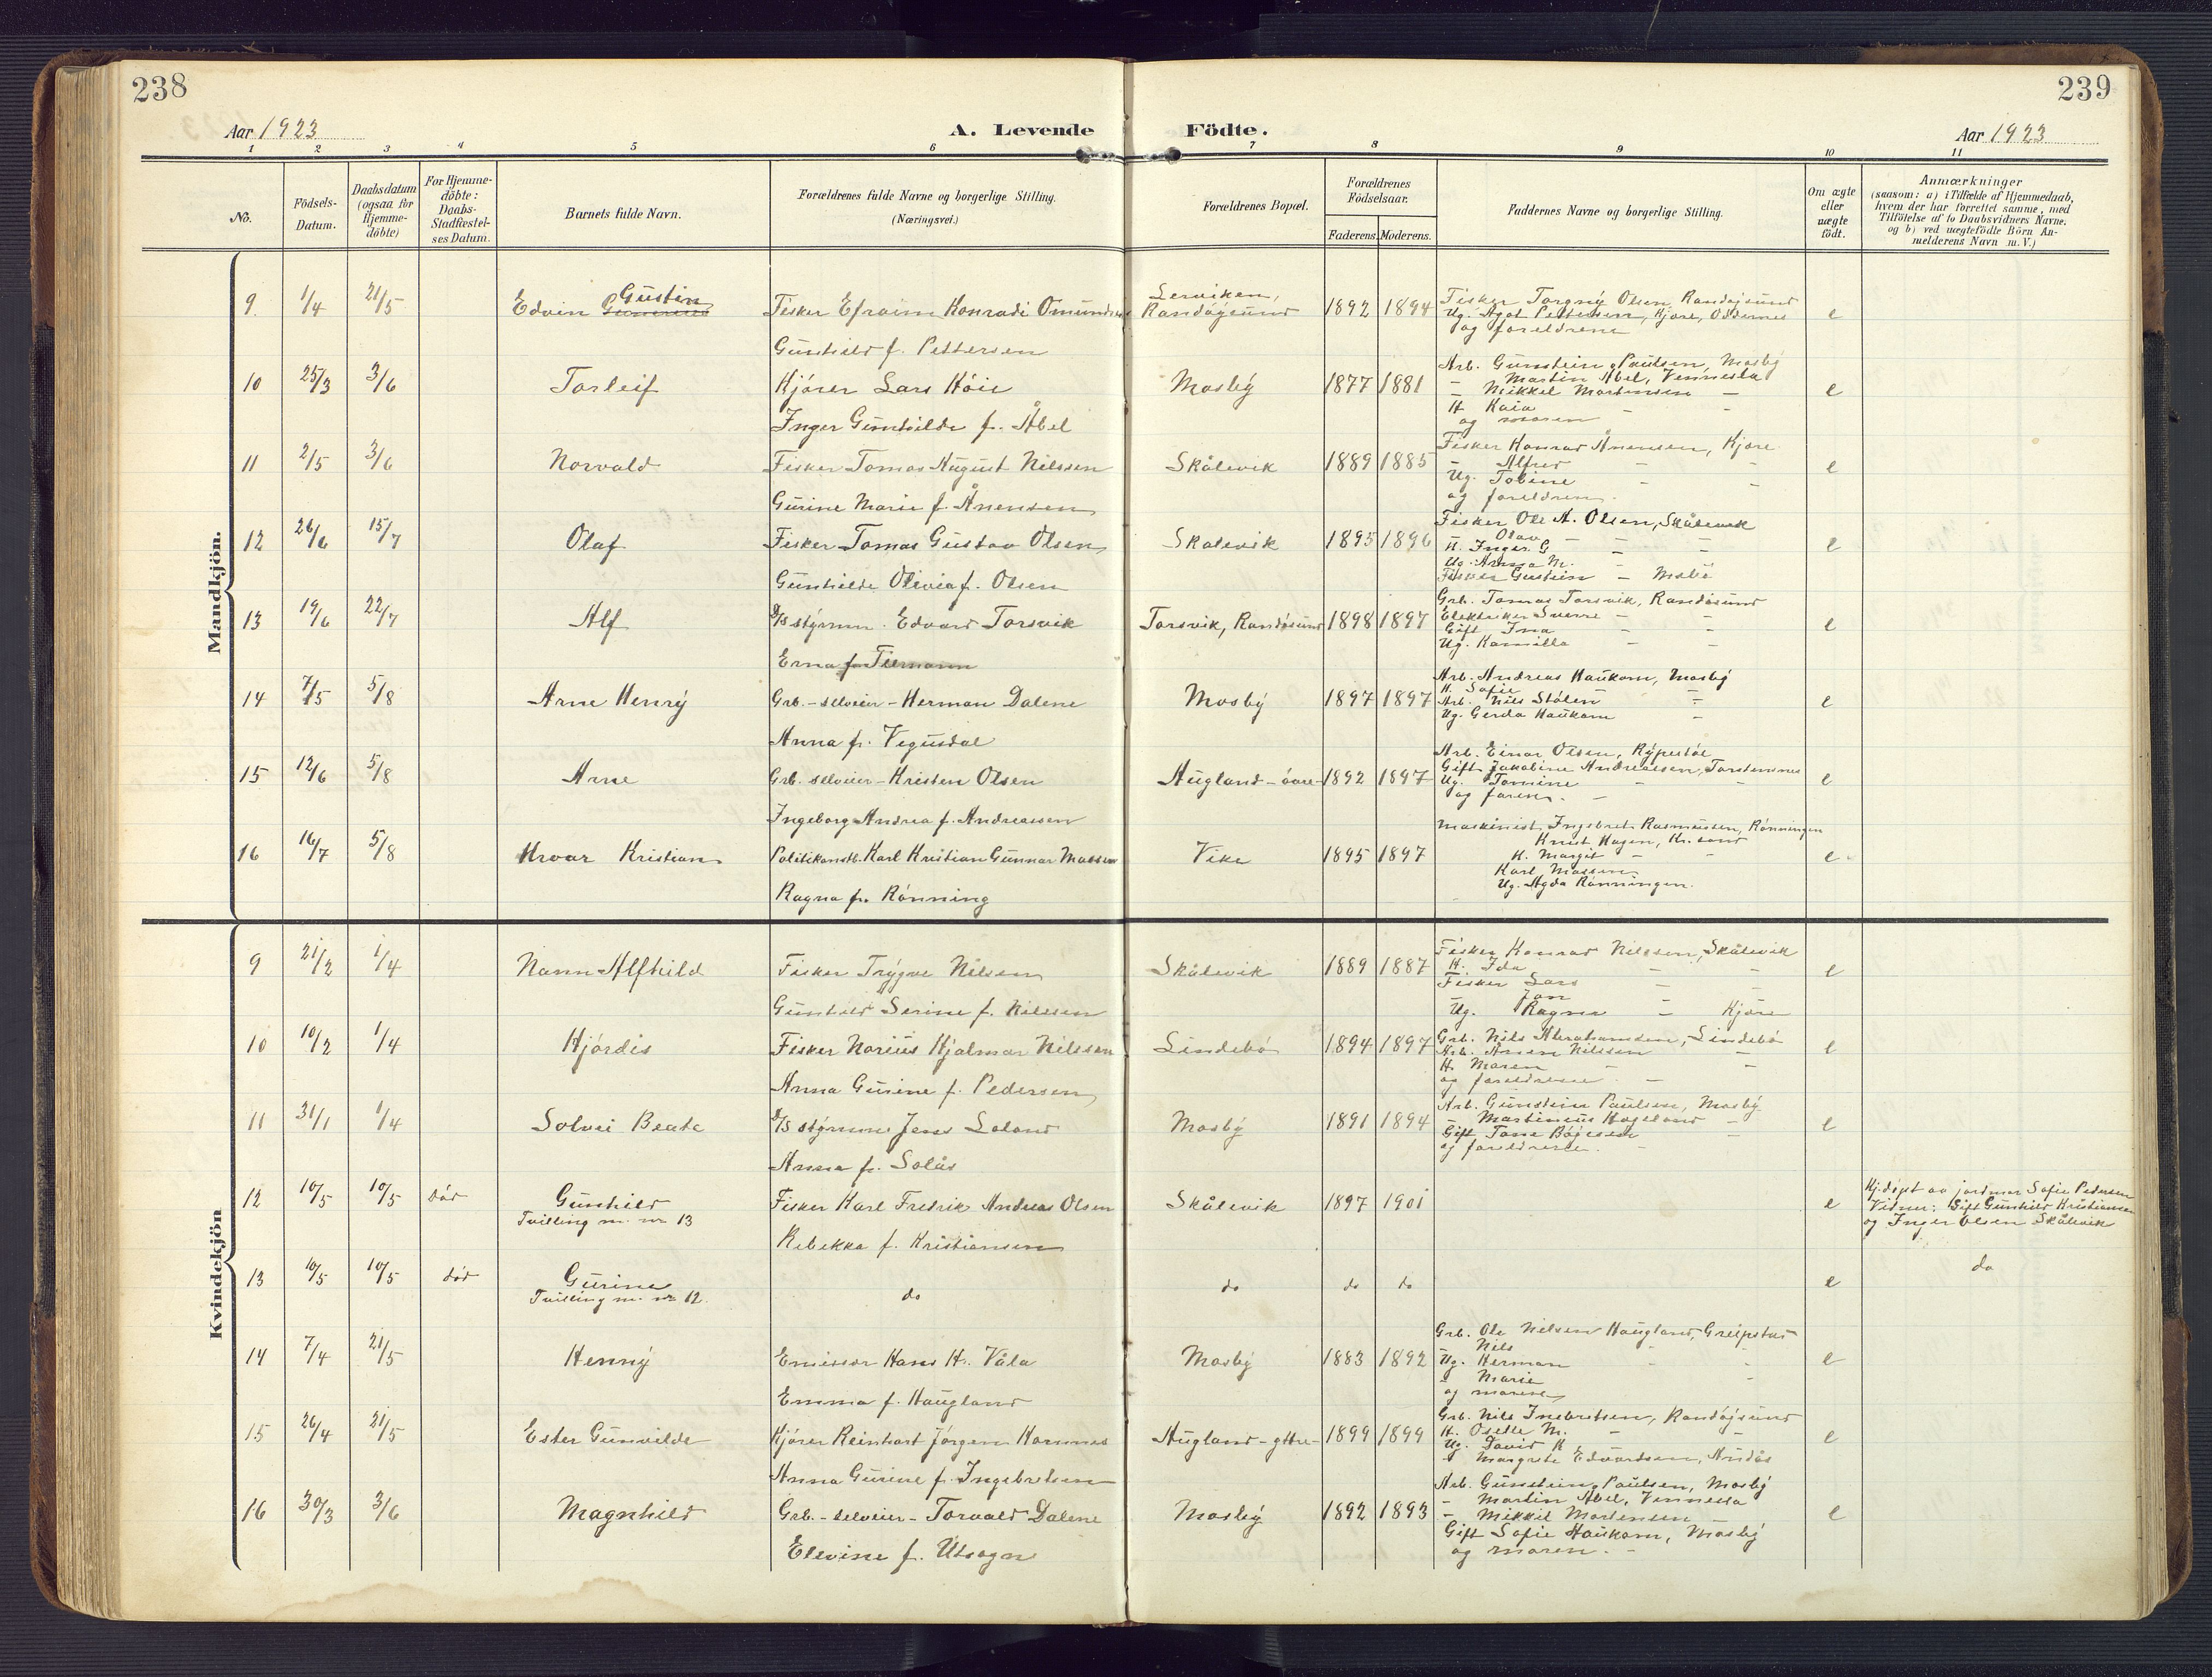 238
239
Aar 1923
A. Levende Födte.
Aar 1923
1 2 3 4 5 6 7 8 9 10 11
No.
Födsels-
Datum.
Daabsdatum
(ogsaa for
Hjemme-
döbte)
For Hjemme-
döbte:
Daabs-
Stadfæstel-
ses Datum.
Barnets fulde Navn.
Forældrenes fulde Navne og borgerlige Stilling.
(Næringsvei.)
Forældrenes Bopæl.
Forældrenes
Födselsaar.
Faderens. Moderens.
Faddernes Navne og borgerlige Stilling.
Om ægte
eller
uægte
födt.
Anmærkninger
(saasom: a) i Tilfælde af Hjemmedaab,
hvem der har forrettet samme, med
Tilföielse af to Daabsvidners Navne.
og b) ved uægtefödte Börn An-
melderens Navn m. V.)
Mandkjön.
9 1/4 21/5 Edvin Gustin
Fisker Efraim Konradi Omunds
Gunhild f. Pettersen
Randøysund 1892 1894
Fisker Torgny Olsen, Randøysund
Ug. Agot Pettersen, Kjore, Oddernes
og foreldrene
e
10 25/3 3/6 Torleif
Kjører Lars Høie
Inger Gunhilde f. Åbel
Mosby 1877 1881
Arb. Gunstein Paulsen, Mosby
- Martin Abel, Vennesla
- Mikkel Mortensen -
H. Kaia - -
og moren
e
11 2/5 3/6 Norvald
Fisker Tomas August Nilssen
Gurine Marie f. Ånensen
Skålevik 1889 1885
Fisker Konrad Ånensen, Kjore
- Alfred - -
Ug. Tobine - -
og foreldrene.
e
12 26/6 15/7 Olaf
Fisker Tomas Gustav Olsen
Gunhilde Olivia f. Olsen
Skålevik 1895 1896
Fisker Ole A. Olsen, Skålevik
- Olav - -
H. Inger G. - -
Ug. Anna M. -
Fisker Gustein -
e
13 19/6 22/7 Alf
D/S styrmn. Edvard Torsvik
Erna f. Tiemann
Torsvik, Randøsund 1898 1897
Grb. Tomas Torsvik, Randøsund
Elektriker Sverre - -
Gift Ina - -
Ug. Kamilla - -
e
14 7/5 5/8 Arne Henry
Grb. - selveier - Herman Dalene
Anna f. Vegusdal
Mosby 1897 1897
Arb. Andreas Haukom, Mosby
H. Sofie -
Arb. Nils Stølen -
Ug. Gerda Haukom -
e
15 12/6 5/8 Arne
Grb. selveier - Kristen Olsen
Ingeborg Andrea f. Andreassen
Augland - øvre - 1892 1897
Arb. Einar Olsen, Rypestøl
Gift Jakobine Andreassen,
Ug. Tomine - -
og faren. -
e
16 16/7 5/8 Hroar Kristian
Politikonstb. Karl Kristian Gunnar Madsen
Ragna f. Rønning
Vike 1895 1897
Maskinist Ingebret Rasmussen, Rønningen
Knut Hagen, Kr.sand
H. Margit - -
Karl Madsen
Ug. Agda Rønningen.
e
Kvindekjön
9 21/2 1/4 Nann Alfhild
Fisker Trygve Nilsen
Gunhild Serine f. Nilssen
Skålevik 1889 1887
Fisker Konrad Nilssen, Skålevik
H. Ida - -
Fisker Lars - -
- Jan
Ug. Ragna - Kjore
e
10 10/2 1/4 Hjørdis
Fisker Norius Hjalmar Nilssen
Anna Gurine f. Pedersen
Lindebø 1894 1897
Grb. Nils Abrahamsen, Lindebø
Arb. Anen Nilssen -
H. Maren - -
og foreldrene. -
e
11 31/1 1/4 Solvei Beate
D/S styrmn. Jens Loland
Anna f. Solås
Mosby 1891 1894
Arb. Gunstein Paulsen, Mosby
- Martinius Hageland -
Gift Tone Bøjesen -
og foreldrene. -
e
12 10/5 10/5 død Gunhild
Tvilling m. nr 13
Fisker Karl Fredrik Andreas Olsen
Rebekka f. Kristiansen
Skålevik 1897 1901
e
Hj.døpt av jordmor Sofie Pedersen
Vidner: Gift Gunhild Kristiansen
og Inger Olsen Skålevik
13 10/5 10/5 død Gurine
Tvilling m. nr 12.
do do do do e do
14 7/4 21/5 Henny
Emissær Hans H. Våla
Emma f. Haugland
Mosby 1883 1892
Grb. Ole Nilsen Haugland, Greipstad
- Nils - -
Ug. Herman - -
- Marie -
og moren
e
15 26/4 21/5 Ester Gunvilde
Kjører Reinhart Jørgen Hamnes
Anna Gurine f. Ingebretsen
Augland - yttre - 1899 1899
Grb. Nils Inebretsen, Randøysund
H. Oselle M. - -
Ug. David R.
- Margrete Edvardsen, Andås
e
16 30/3 3/6 Magnhild
Grb. - selveier - Torvald Dalene
Elevine f. Utsogn
Mosby 1892 1893
Arb. Gunstein Paulsen, Mosby
- Martin Abel, Vennesla
- Mikkel Mortensen -
Gift Sofie Haukom, Mosby
og moren. -
e